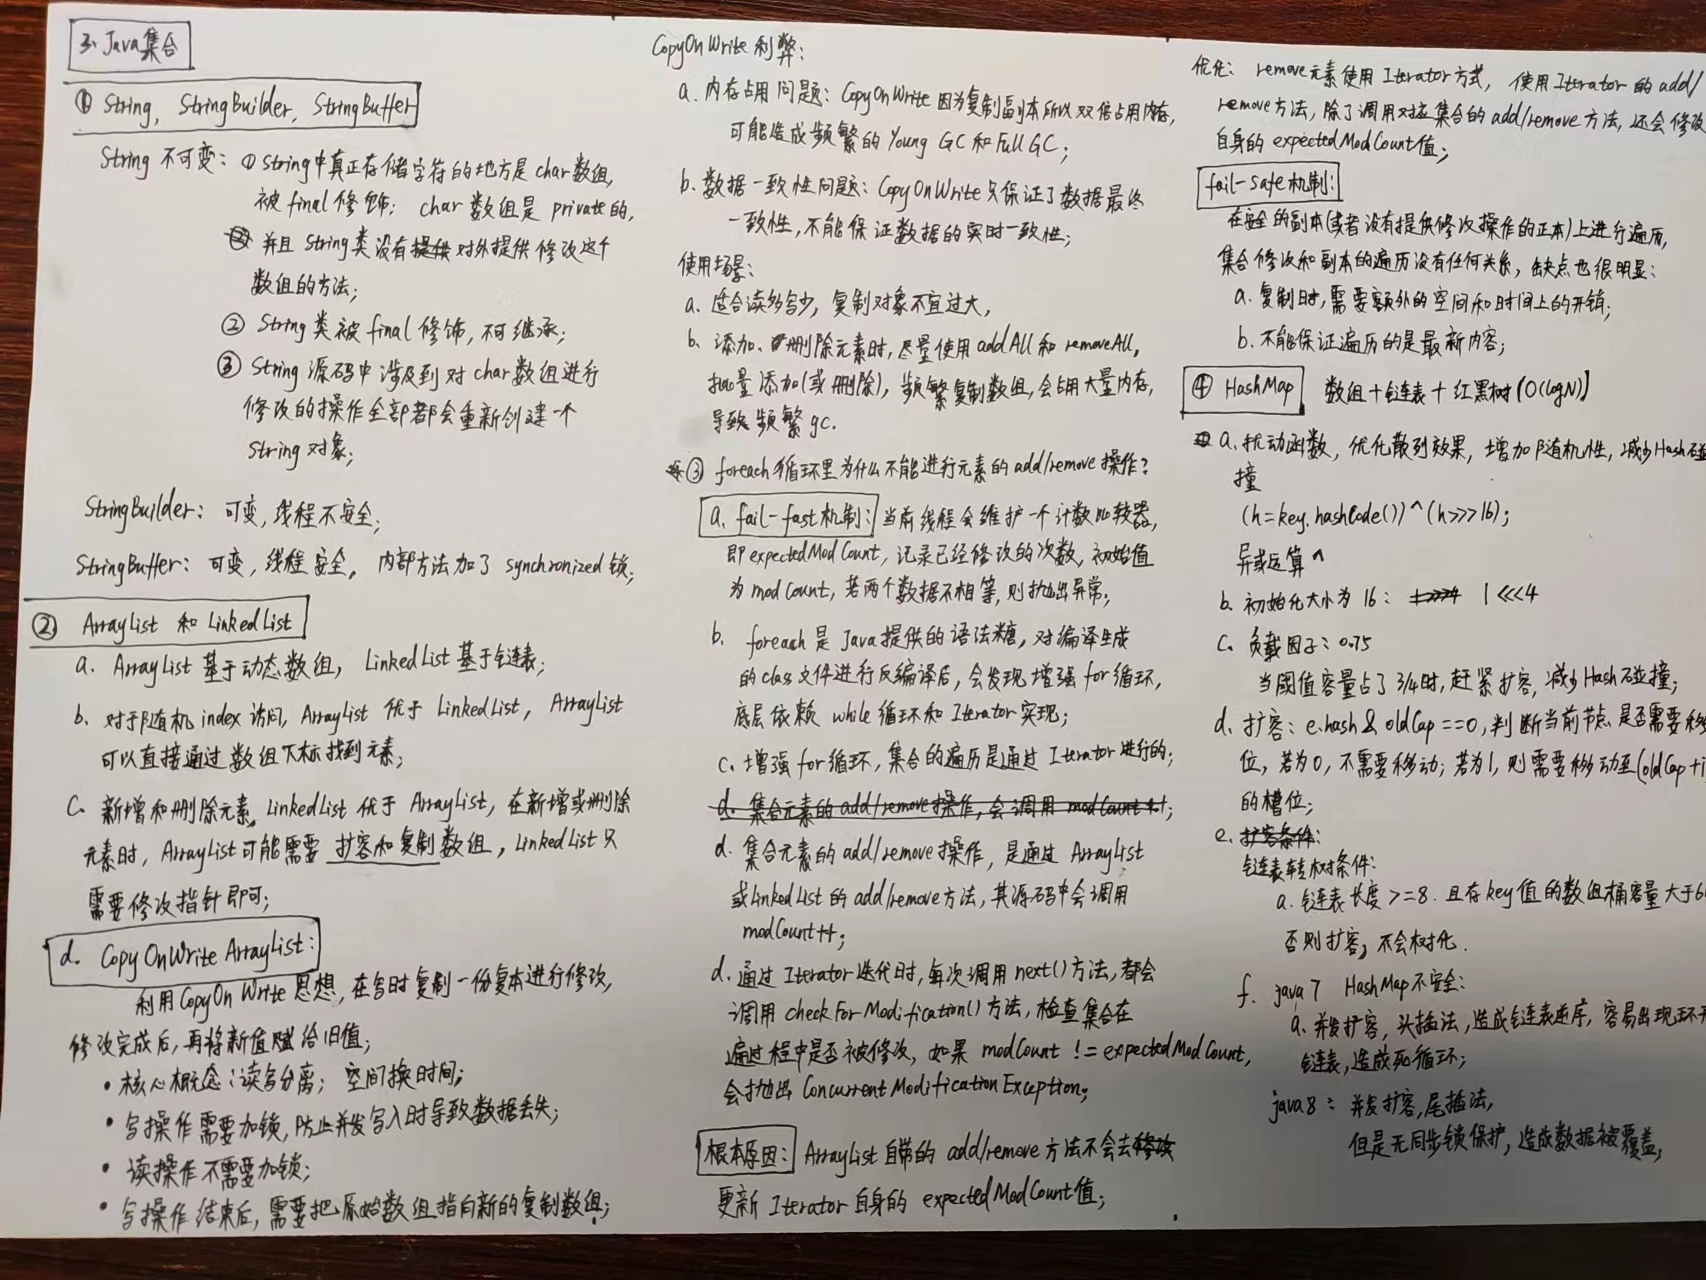 三、Java集合
① String, StringBuilder, StringBuffer
String 不可变: ① String中真正存储字符的地方是 char数组,
被 final 修饰; char 数组是 private的,
并且 String类没有提供对外提供修改这个
数组的方法;
② String类被 final 修饰, 不可继承;
③ String 源码中涉及到对 char数组进行
修改的操作全部都会重新创建一个
String 对象;
StringBuilder: 可变, 线程不安全;
StringBuffer: 可变, 线程安全, 内部方法加了 synchronized 锁;
② ArrayList 和 LinkedList
a. ArrayList 基于动态数组, LinkedList 基于链表;
b. 对于随机 index 访问, ArrayList 优于 LinkedList, ArrayList
可以直接通过数组下标找到元素;
c. 新增和删除元素, LinkedList 优于 ArrayList, 在新增或删除
元素时, ArrayList 可能需要 扩容和复制数组, LinkedList 只
需要修改指针即可;
d. CopyOnWrite ArrayList:
利用CopyOn Write 思想, 在写时复制一份复本进行修改,
修改完成后, 再将新值赋给旧值;
• 核心概念: 读写分离; 空间换时间;
• 写操作需要加锁, 防止并发写入时导致数据丢失;
• 读操作不需要加锁;
• 写操作结束后, 需要把原始数组指向新的复制数组;
CopyOnWrite 利弊:
a. 内存占用问题: CopyOnWrite 因为复制副本所以双倍占用内存,
可能造成频繁的 Young GC 和 Full GC;
b. 数据一致性问题: CopyOnWrite 只保证了数据最终
一致性, 不能保证数据的实时一致性;
使用场景:
a. 适合读多写少, 复制对象不宜过大,
b. 添加、删除元素时, 尽量使用 addAll 和 removeAll,
批量添加(或删除), 频繁复制数组, 会占用大量内存,
导致频繁 gc.
③ foreach 循环里为什么不能进行元素的 add/remove 操作?
a. fail-fast机制: 当前线程会维护一个计数比较器,
即 expectedModCount, 记录已经修改的次数, 初始值
为 modCount, 若两个数据不相等, 则抛出异常;
b. foreach 是 Java 提供的语法糖, 对编译生成
的 class 文件进行反编译后, 会发现增强 for 循环,
底层依赖 while 循环和 Iterator 实现;
c. 增强 for 循环, 集合的遍历是通过 Iterator 进行的;
d. 集合元素的 add/remove 操作, 会调用 modCount++;
d. 集合元素的 add/remove 操作, 是通过 ArrayList
或LinkedList 的 add/remove 方法, 其源码中会调用
modCount++;
d. 通过 Iterator 迭代时, 每次调用 next() 方法, 都会
调用 checkForModification() 方法, 检查集合在
遍过程中是否被修改, 如果 modCount != expectedModCount,
会抛出 ConcurrentModificationException;
根本原因: ArrayList 自带的 add/remove 方法不会去修改
更新 Iterator 自身的 expectedModCount值;
优化: remove元素使用 Iterator 方式, 使用 Iterator 的 add/
remove 方法, 除了调用对应集合的 add/remove 方法, 还会修改
自身的 expectedModCount值;
fail-safe 机制:
在安全的副本(或者没有提供修改操作的正本)上进行遍历,
集合修改和副本的遍历没有任何关系, 缺点也很明显:
a. 复制时, 需要额外的空间和时间上的开销;
b. 不能保证遍历的是最新内容;
④ HashMap 数组+链表+红黑树(O(logN))
a. 扰动函数, 优化散列效果, 增加随机性, 减少Hash碰
撞
(h=key.hashCode())^(h>>>16);
异或运算 ^
b. 初始化大小为 16: 1>>>4 1<<<4
c. 负载因子: 0.75
当阈值容量占了 3/4时, 赶紧扩容, 减少 Hash 碰撞;
d. 扩容: e.hash & oldCap ==0, 判断当前节点是否需要移
位, 若为0, 不需要移动; 若为1, 则需要移动至(oldCap+i
的槽位;
e. 扩容条件:
链表转树条件:
a. 链表长度>=8. 且存 key 值的数组桶容量大于6
否则扩容, 不会树化.
f. java7 HashMap不安全:
a. 并发扩容, 头插法, 造成链表逆序, 容易出现环
链表, 造成死循环;
java8: 并发扩容, 尾插法,
但是无同步锁保护, 造成数据被覆盖;